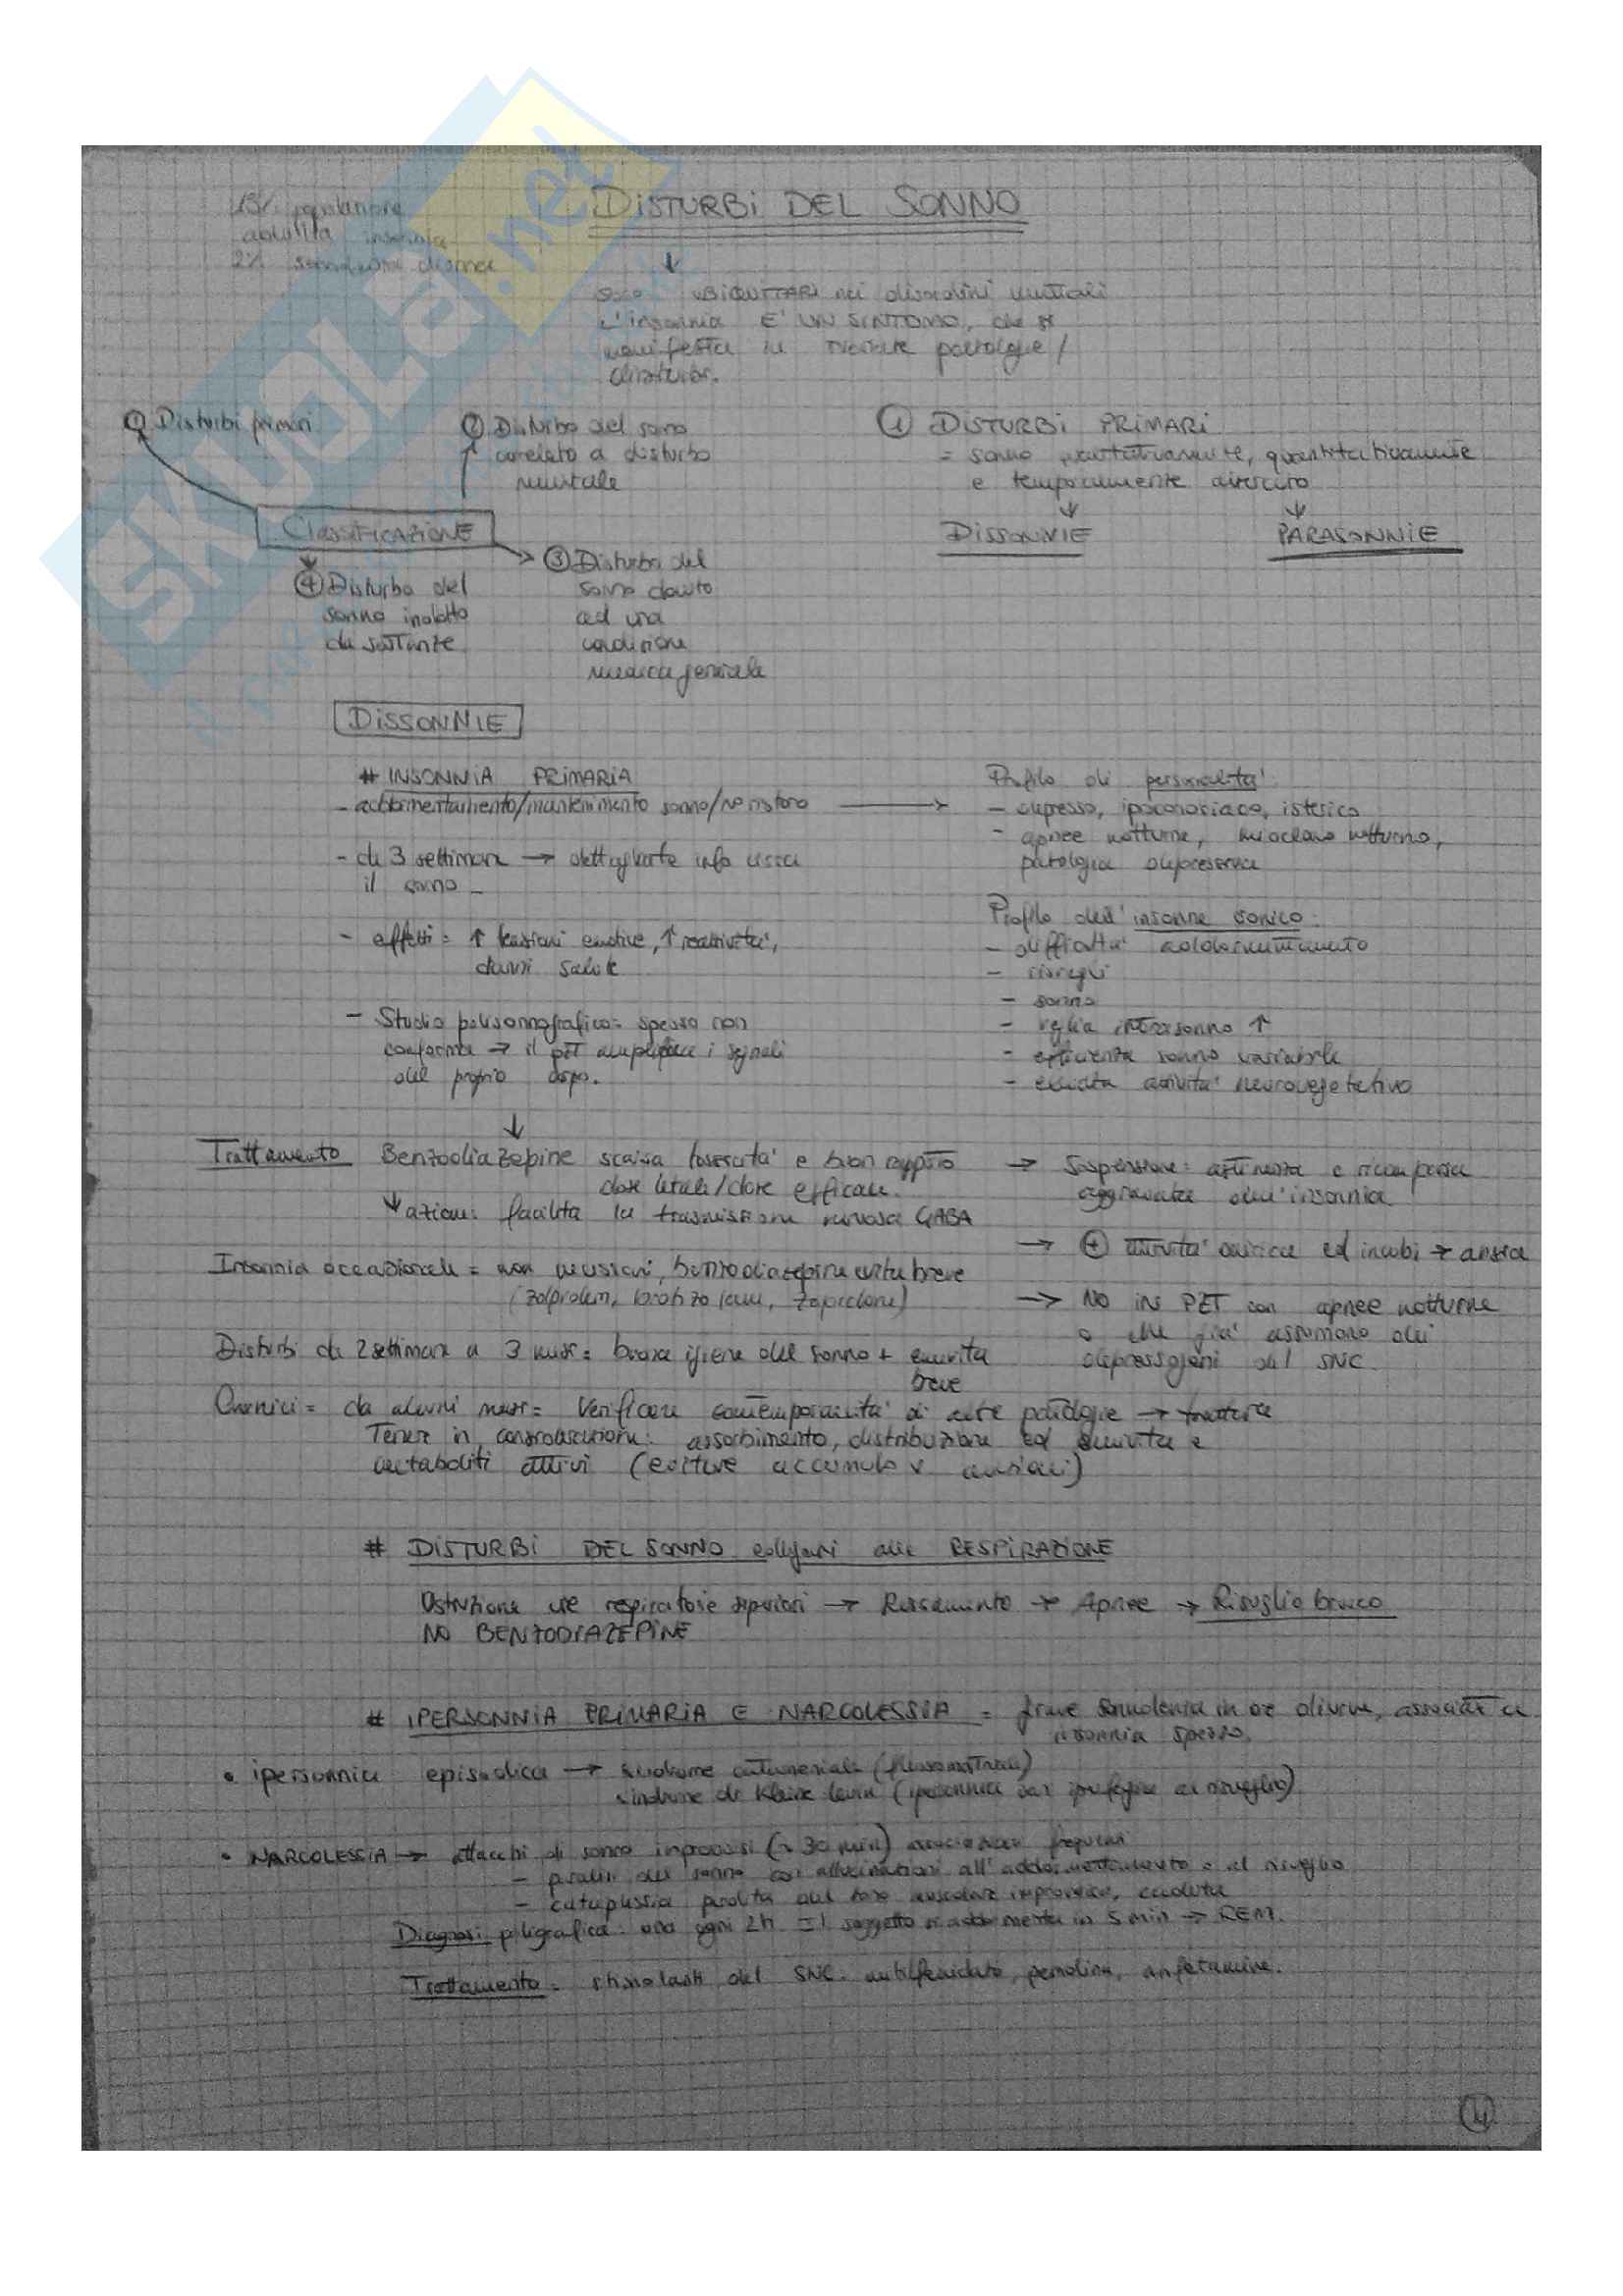 DISTURBI DEL SONNO
15% popolazione
insonnia
2% sonnolenza diurna
Sono UBIQUITARI nei disordini mentali
L'insonnia E' UN SINTOMO, che si
manifesta in svariate patologie/
disturbi.
① Disturbi primari
② Disturbo del sonno
correlato a disturbo
mentale
CLASSIFICAZIONE
③ Disturbi del
sonno dovuto
ad una
condizione
medica generale
④ Disturbo del
sonno indotto
da sostanze
① DISTURBI PRIMARI
= sonno qualitativamente, quantitativamente
e temporalmente alterato
DISSONNIE
PARASONNIE
DISSONNIE
# INSONNIA PRIMARIA
- addormentamento/mantenimento sonno/no ristoro
- da 3 settimane → dettagliate info circa
il sonno
- effetti = ↑ tensioni emotive, ↑ reattività,
danni salute
- Studio polisonnografico = spesso non
conferma → il pzt amplifica i segnali
del proprio
Profilo di personalità:
- depresso, ipocondriaco, isterico
- apnee notturne, mioclono notturno,
patologia depressiva
Profilo dell'insonne cronico:
- difficoltà addormentamento
- risvegli
- sonno
- veglia intrasonno ↑
- efficienza sonno variabile
- elevata attività neurovegetativa
Trattamento Benzodiazepine scarsa tossicità e buon rapporto
dose letale/dose efficace.
↓ azione: facilita la trasmissione nervosa GABA
→ Sospensione: astinenza e ricomparsa
aggravata dell'insonnia
→ ⊕ attività onirica ed incubi → ansia
→ NO IN PZT con apnee notturne
o che già assumono dei
depressogeni del SNC.
Insonnia occasionale = non necessari, benzodiazepine emivita breve
(zolpidem, brotizolam, zopiclone)
Disturbi da 2 settimane a 3 mesi = buona igiene del sonno + emivita
breve
Cronici = da alcuni mesi = verificare contemporaneità di altre patologie → trattare
Tener in considerazione: assorbimento, distribuzione ed emivita e
metaboliti attivi (evitare accumulo x anziani)
# DISTURBI DEL SONNO collegati alla RESPIRAZIONE
Ostruzione vie respiratorie superiori → Russamento → Apnee → Risveglio brusco
NO BENZODIAZEPINE
# IPERSONNIA PRIMARIA E NARCOLESSIA = grave sonnolenza in ore diurne, associata a
insonnia spesso.
• ipersonnia episodica → sindrome catameniale
sindrome di Kleine Levin (ipersonnia con iperfagia al risveglio)
• NARCOLESSIA → attacchi di sonno improvvisi (~ 30 min) associazioni frequenti
- paralisi del sonno con allucinazioni all'addormentamento o al risveglio
- cataplessia perdita del tono muscolare improvviso, caduta
Diagnosi poligrafica: ogni 2h il soggetto si addormenta in 5 min → REM.
Trattamento = stimolanti del SNC: metilfenidato, pemolina, anfetamine.
4
SKUOLA.net